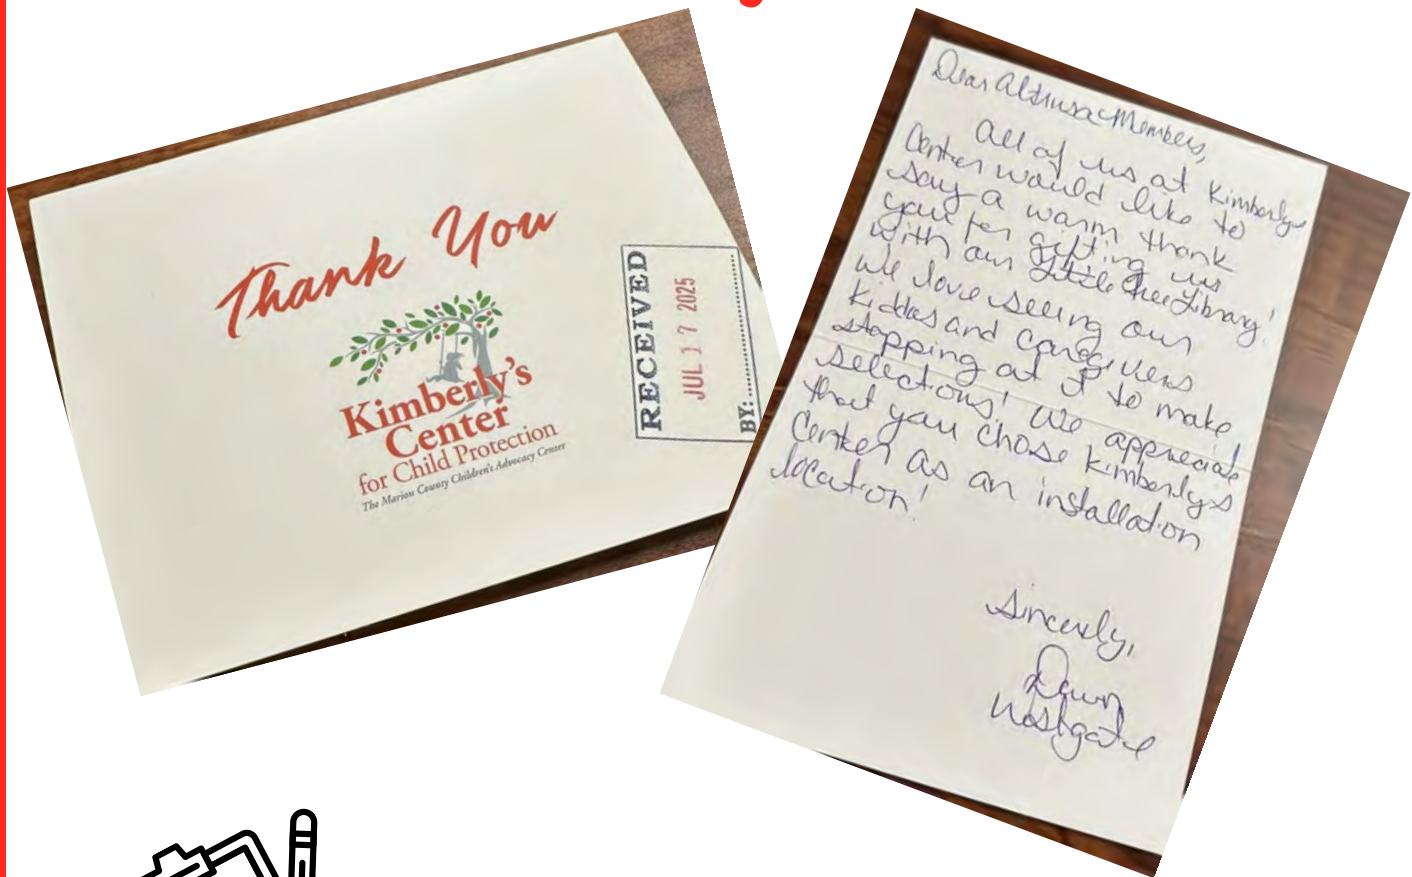 Thank You
Kimberly's
Center
for Child Protection
The Marion County Children's Advocacy Center
RECEIVED
JUL 17 2025
BY:
Dear Altrusa Members,
All of us at Kimberlys
Center would like to
say a warm thank
you for gifting us
with our Little Free Library!
We love seeing our
kiddos and caregivers
stopping at it to make
selections! We appreciate
that you chose Kimberly's
Center as an installation
location!
Sincerely,
Dawn
Westgate